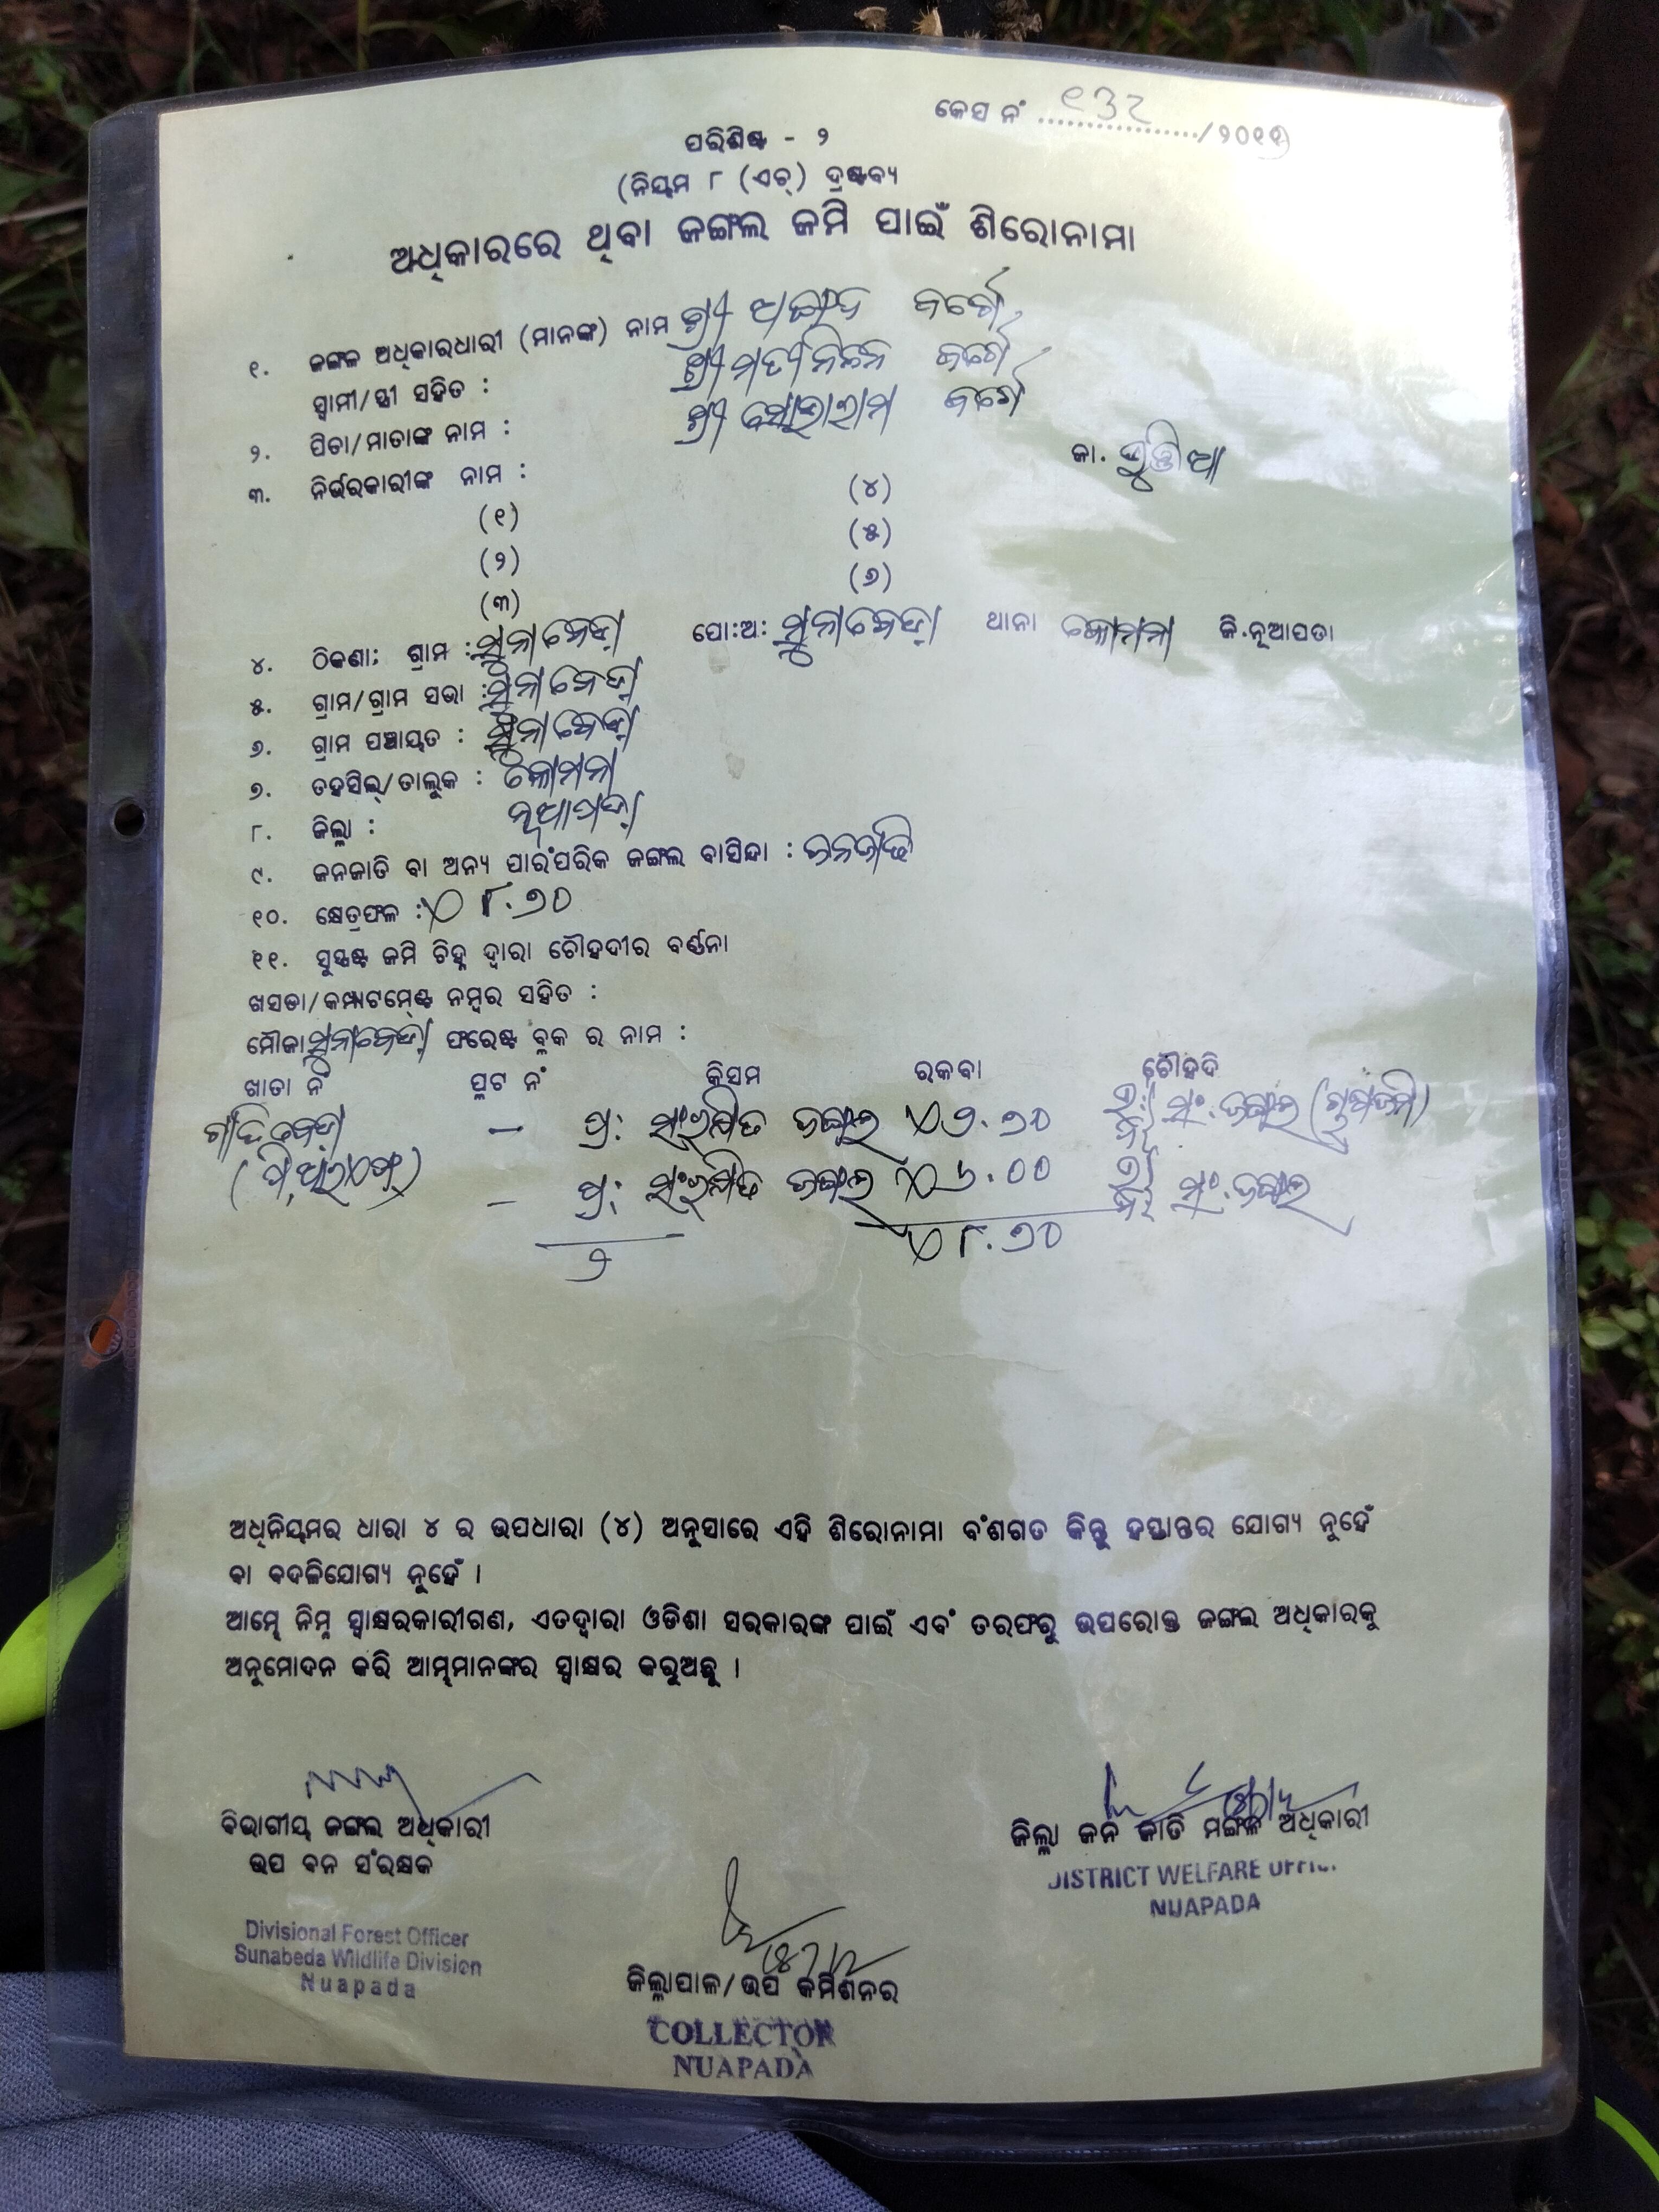 କେସ ନଂ ................/୨୦୧୧
ପରିଶିଷ୍ଟ - ୨
(ନିୟମ ୮ (ଏଚ୍) ଦ୍ରଷ୍ଟବ୍ୟ
ଅଧିକାରରେ ଥିବା ଜଙ୍ଗଲ ଜମି ପାଇଁ ଶିରୋନାମା
୧. ଜଙ୍ଗଳ ଅଧିକାରଧାରୀ (ମାନଙ୍କ) ନାମ ଶ୍ରୀ
ସ୍ୱାମୀ/ସ୍ତ୍ରୀ ସହିତ : ଶ୍ରୀମତୀ
୨. ପିତା/ମାତାଙ୍କ ନାମ : ଶ୍ରୀ
ଜା. ଭୁଞ୍ଜିଆ
୩. ନିର୍ଭରକାରୀଙ୍କ ନାମ :
(୧) (୪)
(୨) (୫)
(୩) (୬)
୪. ଠିକଣା; ଗ୍ରାମ : ସୁନାବେଡା ପୋ:ଅ: ସୁନାବେଡା ଥାନା କୋମନା ଜି.ନୂଆପଡା
୫. ଗ୍ରାମ/ଗ୍ରାମ ସଭା : ସୁନାବେଡା
୬. ଗ୍ରାମ ପଞ୍ଚାୟତ : ସୁନାବେଡା
୭. ତହସିଲ୍/ତାଲୁକ : କୋମନା
୮. ଜିଲ୍ଲା : ନୂଆପଡା
୯. ଜନଜାତି ବା ଅନ୍ୟ ପାରଂପରିକ ଜଙ୍ଗଲ ବାସିନ୍ଦା : ଜନଜାତି
୧୦. କ୍ଷେତ୍ରଫଳ : ୮.୭୦
୧୧. ସୁସ୍ପଷ୍ଟ ଜମି ଚିହ୍ନ ଦ୍ୱାରା ଚୌହଦୀର ବର୍ଣ୍ଣନା
ଖସଡା/କମ୍ପାଟମେଣ୍ଟ ନମ୍ବର ସହିତ :
ମୌଜା ସୁନାବେଡା ଫରେଷ୍ଟ ବ୍ଳକ ର ନାମ :
ଖାତା ନଂ ପ୍ଲଟ ନଂ କିସମ ରକବା ଚୌହଦି
— ପ୍ର: ସଂରକ୍ଷିତ ଜଙ୍ଗଲ ୨.୭୦ ସଂ.ଜଙ୍ଗଲ
– ପ୍ର: ସଂରକ୍ଷିତ ଜଙ୍ଗଲ ୬.୦୦ ସଂ.ଜଙ୍ଗଲ
୨ ୮.୭୦
ଅଧିନିୟମର ଧାରା ୪ ର ଉପଧାରା (୪) ଅନୁସାରେ ଏହି ଶିରୋନାମା ବଂଶଗତ କିନ୍ତୁ ହସ୍ତାନ୍ତର ଯୋଗ୍ୟ ନୁହେଁ
ବା ବଦଳିଯୋଗ୍ୟ ନୁହେଁ ।
ଆମ୍ଭେ ନିମ୍ନ ସ୍ୱାକ୍ଷରକାରୀଗଣ, ଏତଦ୍ୱାରା ଓଡିଶା ସରକାରଙ୍କ ପାଇଁ ଏବଂ ତରଫରୁ ଉପରୋକ୍ତ ଜଙ୍ଗଲ ଅଧିକାରକୁ
ଅନୁମୋଦନ କରି ଆମ୍ଭମାନଙ୍କର ସ୍ୱାକ୍ଷର କରୁଅଛୁ ।
ବିଭାଗୀୟ ଜଙ୍ଗଲ ଅଧିକାରୀ
ଉପ ବନ ସଂରକ୍ଷକ
Divisional Forest Officer
Sunabeda Wildlife Division
Nuapada
ଜିଲ୍ଲା ଜନ ଜାତି ମଙ୍ଗଳ ଅଧିକାରୀ
DISTRICT WELFARE
NUAPADA
ଜିଲ୍ଲାପାଳ/ଉପ କମିଶନର
COLLECTOR
NUAPADA